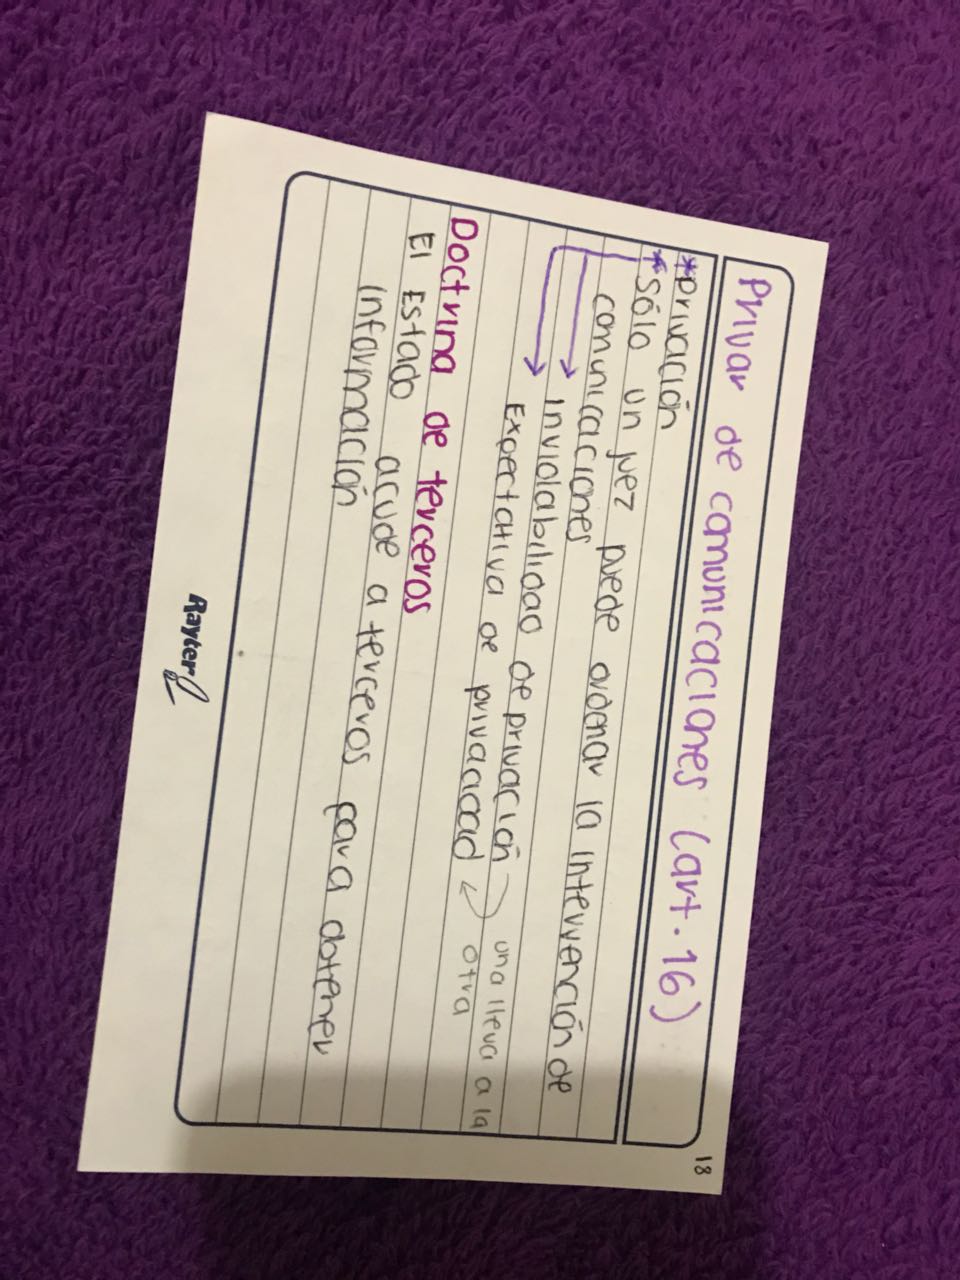 18
Privar de comunicaciones (art. 16)
*privación
*Sólo un juez puede ordenar la intervención de
comunicaciones
Inviolabilidad de privación
una lleva a la
Expectativa de privacidad
otra
Doctrina de terceros
El Estado acude a terceros para obtener
información
Rayter